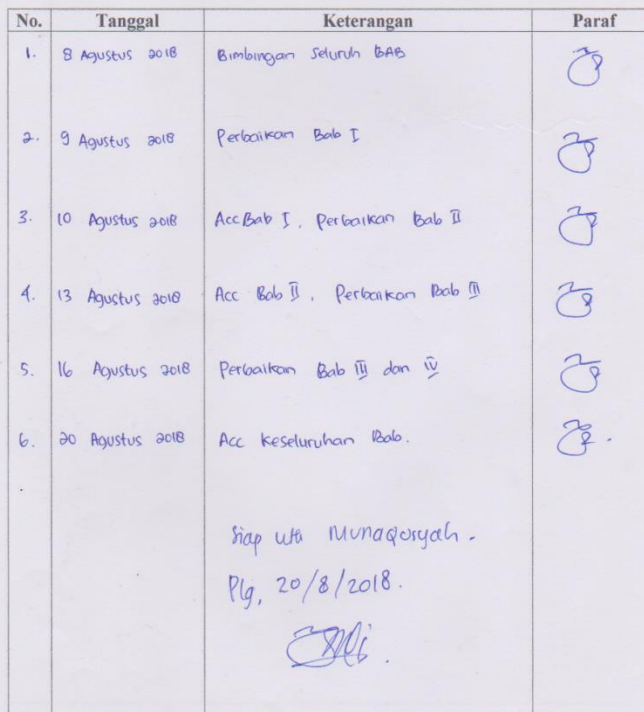 No. Tanggal Keterangan Paraf
1. 8 Agustus 2018 Bimbingan Seluruh BAB
2. 9 Agustus 2018 Perbaikan Bab I
3. 10 Agustus 2018 Acc Bab I, Perbaikan Bab II
4. 13 Agustus 2018 Acc Bab II, Perbaikan Bab III
5. 16 Agustus 2018 Perbaikan Bab III dan IV
6. 20 Agustus 2018 Acc Keseluruhan Bab.
Siap utk Munaqosyah.
Plg, 20/8/2018.